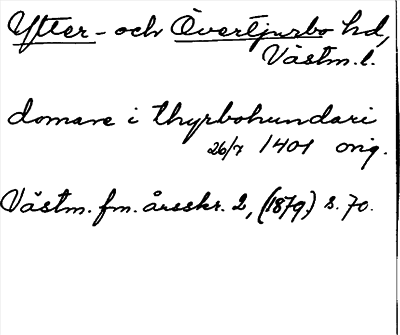 Ytter- och Övertjurbo hd,
Västm. l.
domare i thyrbohundari
26/7 1401 orig.
Västm. fm. årsskr. 2, (1879,) s. 70.